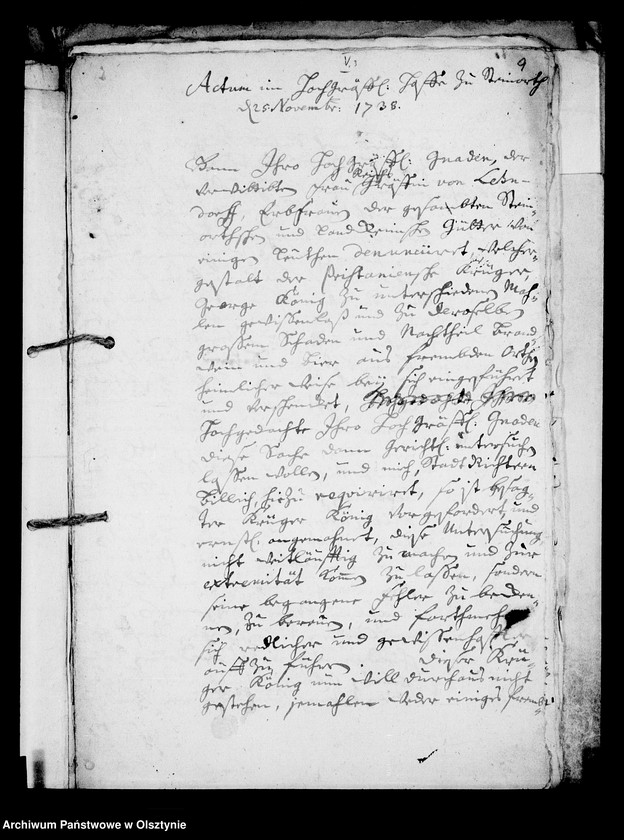 V.
9
Actum im Hochgräffl: Hoffe zu Steinorth
d 25 Novembr: 1738.
Wann Ihro HochGräffl: Gnaden, der
verwittibten Frau Reichs Gräffin von Lehn-
dorff, Erbfrauen der gesambten Stein-
orthschen und Gütter von
einigen Leuthen denunciiret, welcher-
gestalt der Pristaniensche Krüger,
George König zu unterschiedenen Mah-
len gewissenloß und zu Deroselben
grossem Schaden und Nachtheil Brand-
wein und Bier aus frembden Orthen
heimlicher Weise bey sich eingeführet
und verschencket,
Hochgedachte Ihro HochGräffl: Gnaden
diese Sache dann gerichtl: untersuchen
lassen wollen, und mich, StadtRichtern
Billich, hiezu requiriret, so ist besag-
ter Krüger König vorgefordert und
ernstl. angemahnet, diese Untersuchung
nicht weitläufftig zu machen und zur
extremität kommen zu lassen, sondern
seine begangene Fehler zu beken-
nen, zu bereuen, und forthmehr
sich redlicher und gewissenhaffter
auffzuführen. Dieser Krü-
ger König nun will durchaus nicht
gestehen, jemahlen weder einiges frembd
Archiwum Państwowe w Olsztynie